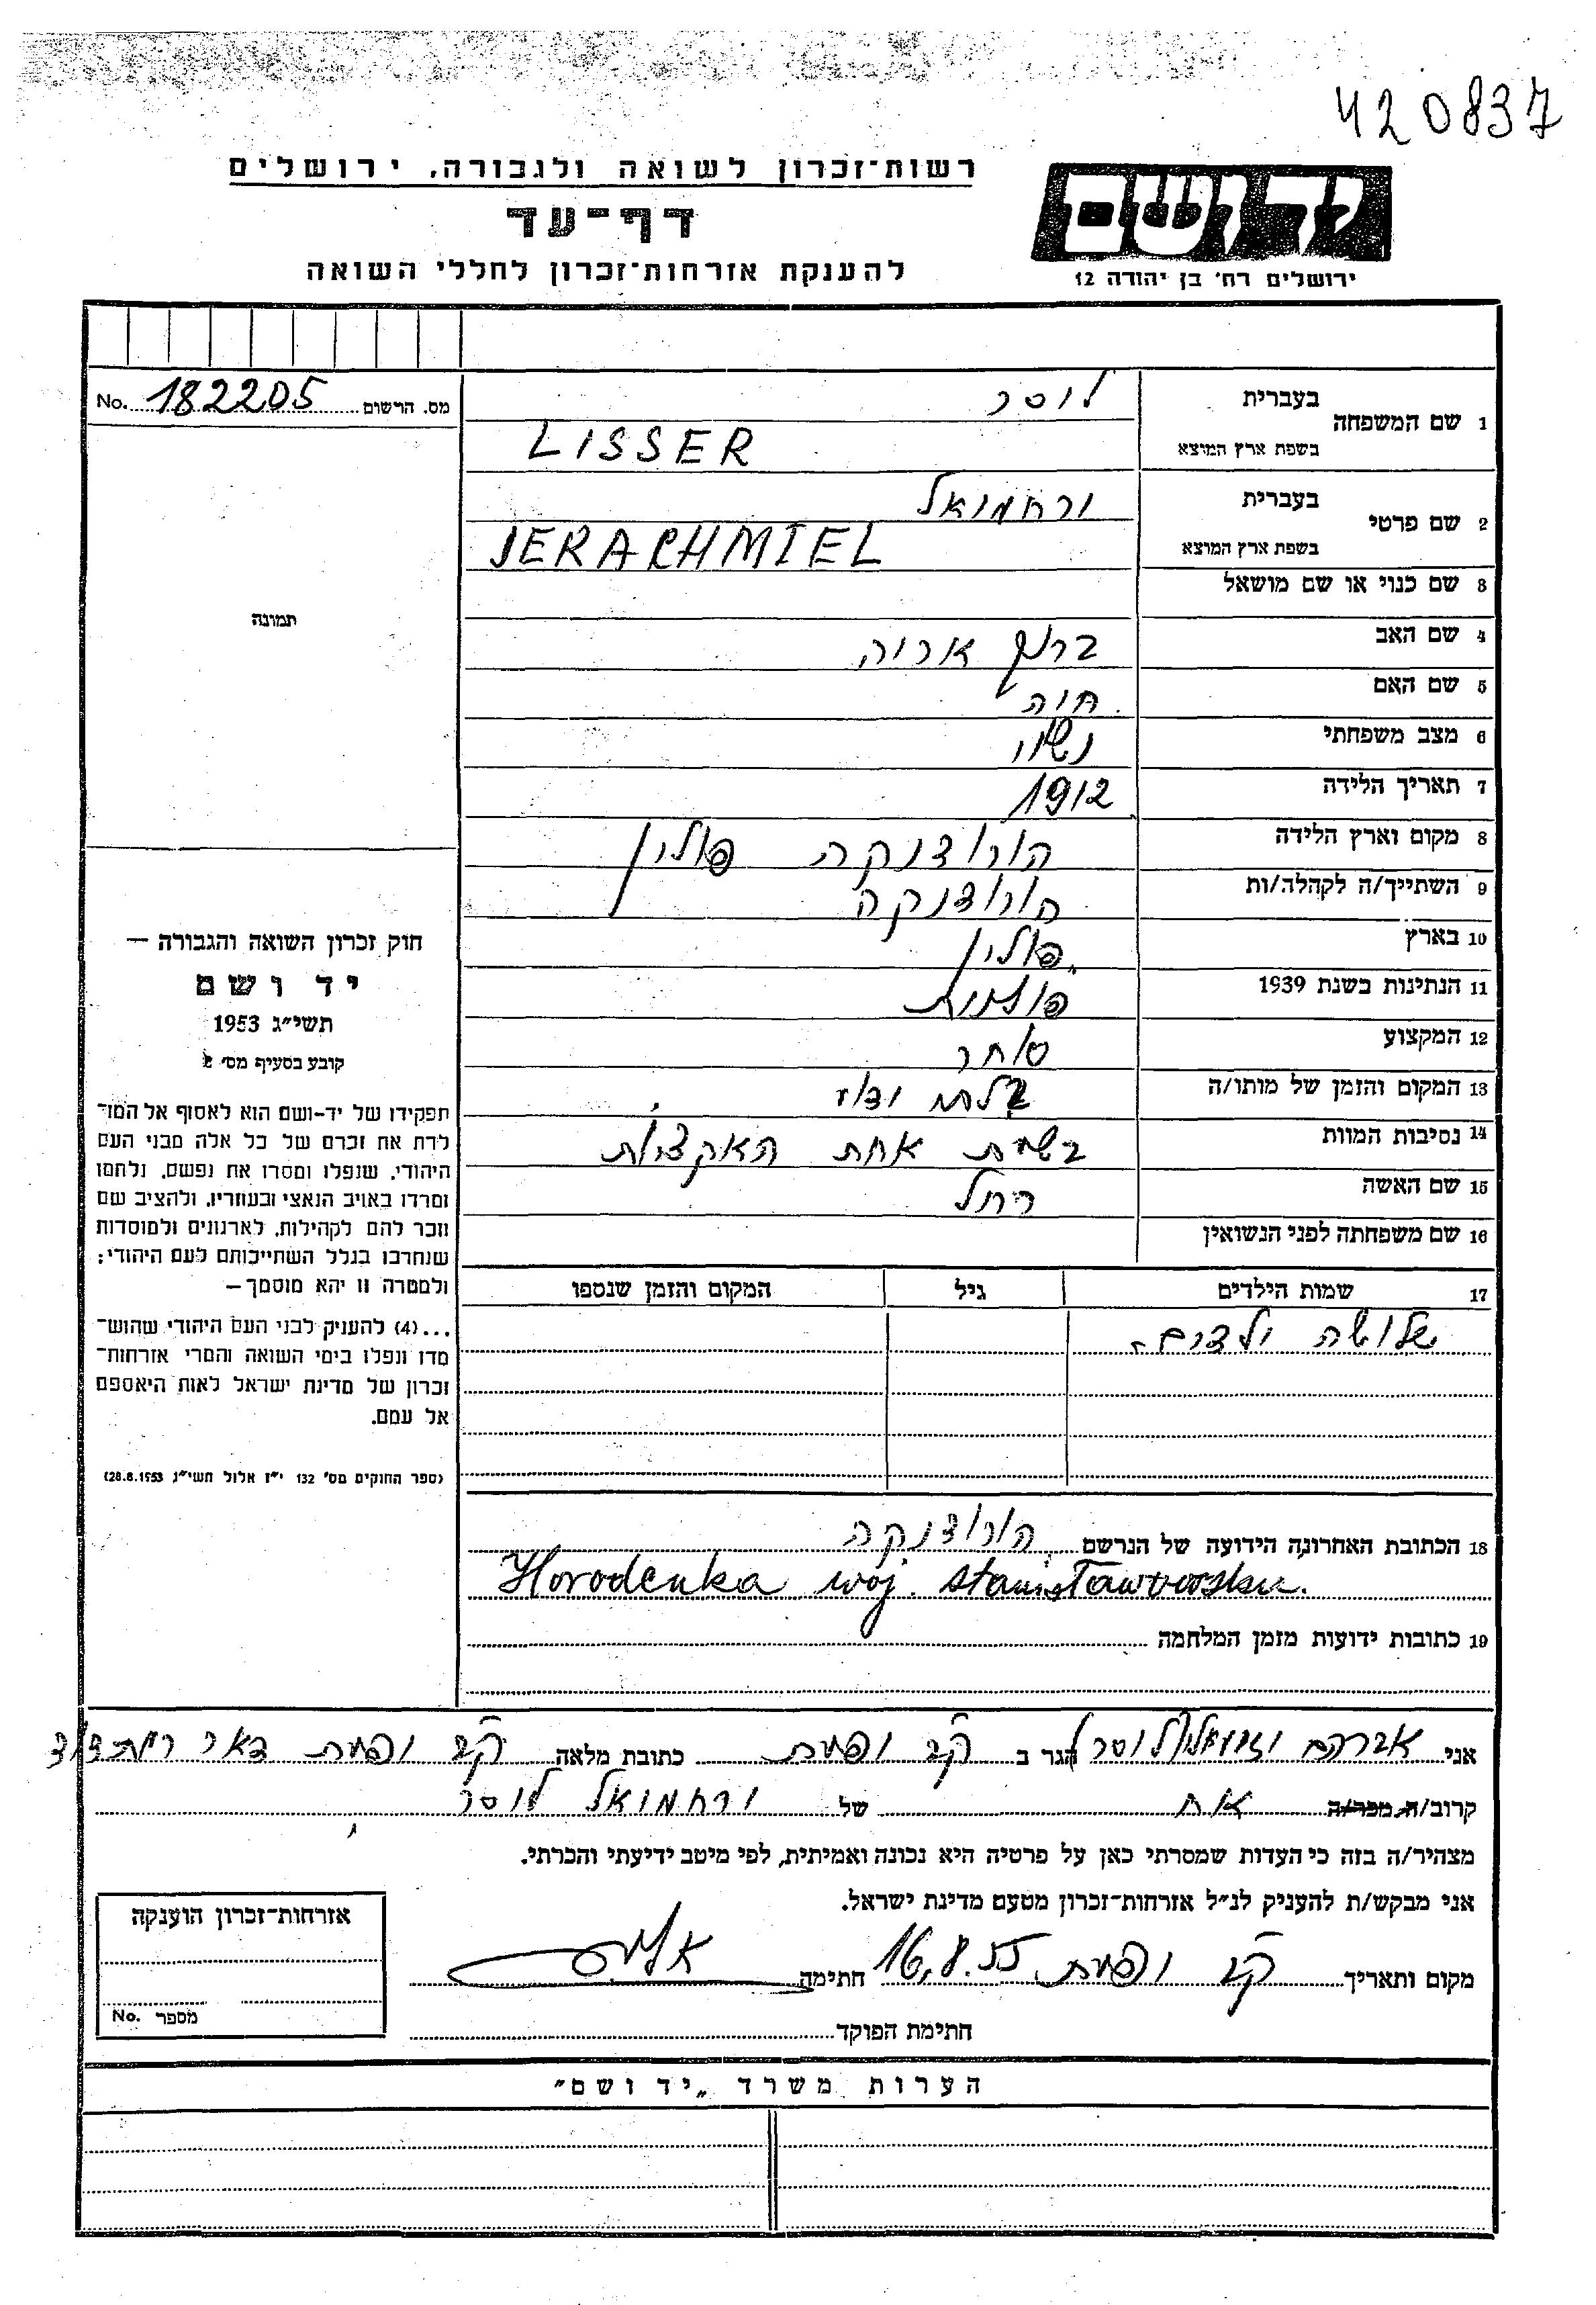 420837
יד ושם
ירושלים רח' בן יהודה 12
רשות־זכרון לשואה ולגבורה, ירושלים
דף־עד
להענקת אזרחות־זכרון לחללי השואה
No. 182205 מס. הרשום
1 שם המשפחה בעברית ליסר
בשפת ארץ המוצא LISSER
2 שם פרטי בעברית ירחמיאל
בשפת ארץ המוצא JERACHMIEL
3 שם כנוי או שם מושאל
4 שם האב ברוך אריה
5 שם האם חיה
6 מצב משפחתי נשוי
7 תאריך הלידה 1912
8 מקום וארץ הלידה הורודנקה פולין
9 השתייך/ה לקהלה/ות הורודנקה
10 בארץ פולין
11 הנתינות בשנת 1939 פולנית
12 המקצוע סוחר
13 המקום והזמן של מותו/ה
14 נסיבות המוות בשעת אחת האקציות
15 שם האשה רחל
16 שם משפחתה לפני הנשואין
17 שמות הילדים גיל המקום והזמן שנספו
שלושה ילדים -
18 הכתובת האחרונה הידועה של הנרשם הורודנקה
Horodenka woj. stanisławowskie.
19 כתובות ידועות מזמן המלחמה
תמונה
חוק זכרון השואה והגבורה —
יד ושם
תשי"ג 1953
קובע בסעיף מס' 2
תפקידו של יד-ושם הוא לאסוף אל המו־
לדת את זכרם של כל אלה מבני העם
היהודי, שנפלו ומסרו את נפשם, נלחמו
ומרדו באויב הנאצי ובעוזריו, ולהציב שם
וזכר להם לקהילות, לארגונים ולמוסדות
שנחרבו בגלל השתייכותם לעם היהודי;
ולמטרה זו יהא מוסמך —
...(4) להעניק לבני העם היהודי שהוש־
מדו ונפלו בימי השואה והמרי אזרחות־
זכרון של מדינת ישראל לאות היאספם
אל עמם.
(ספר החוקים מס' 132 י"ז אלול תשי"ג 28.8.1953)
אני אברהם ליסר הגר ב קב' יפעת כתובת מלאה קב' יפעת דאר רמת דוד
קרוב/ה מכר/ה אח של ירחמיאל ליסר
מצהיר/ה בזה כי העדות שמסרתי כאן על פרטיה היא נכונה ואמיתית, לפי מיטב ידיעתי והכרתי.
אני מבקש/ת להעניק לנ"ל אזרחות־זכרון מטעם מדינת ישראל.
מקום ותאריך קב' יפעת 16.8.55 חתימה
חתימת הפוקד
אזרחות־זכרון הוענקה
No. מספר
הערות משרד „יד ושם"